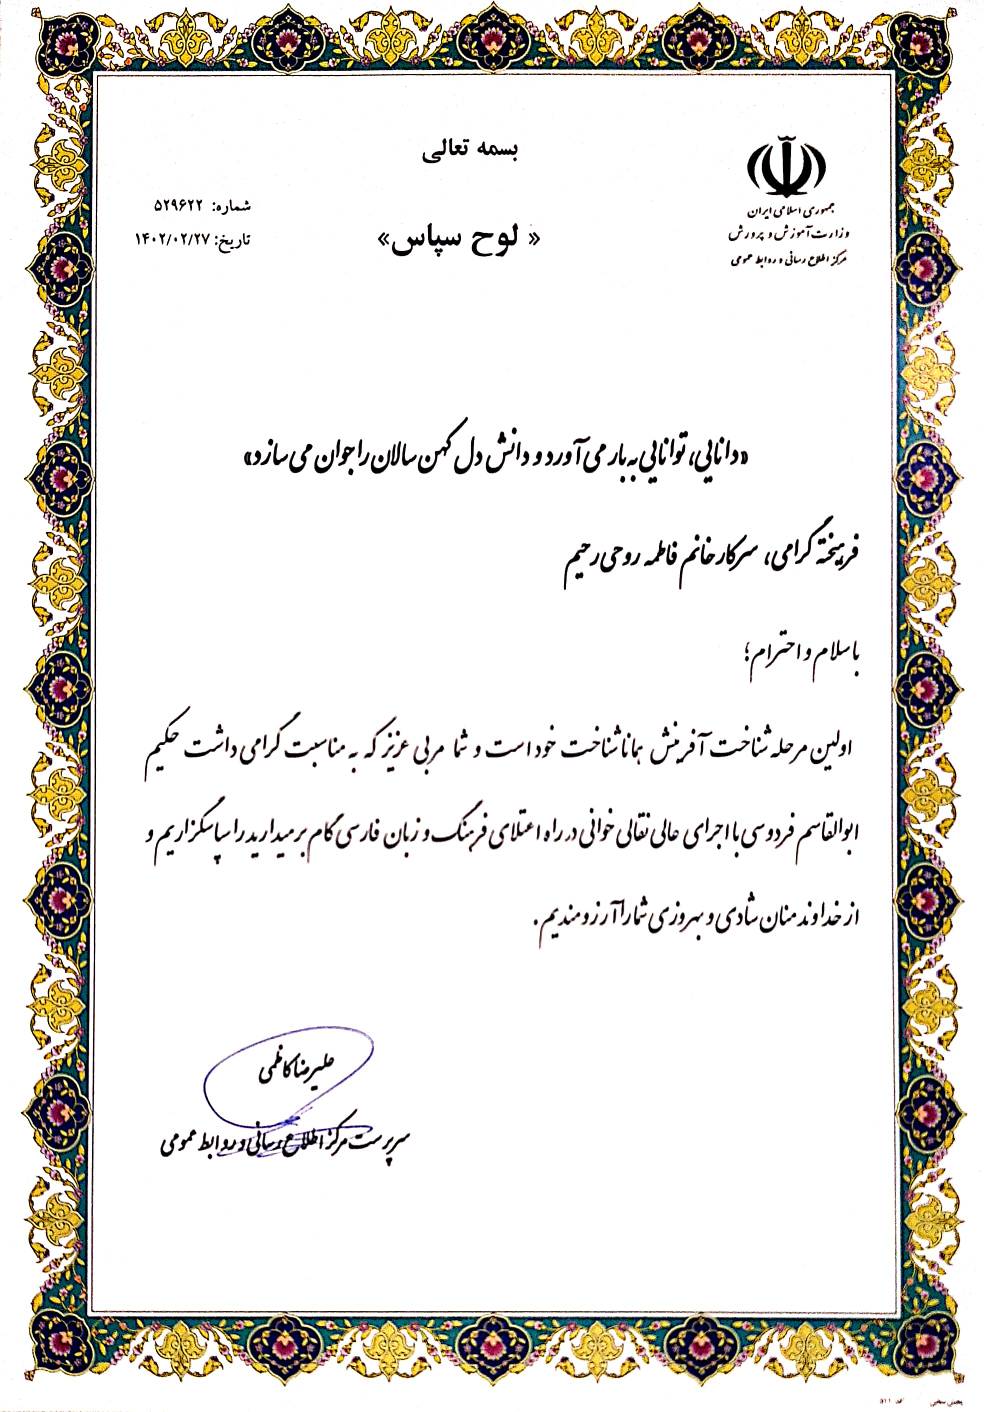 بسمه تعالی
جمهوری اسلامی ایران
وزارت آموزش و پرورش
مرکز اطلاع رسانی و روابط عمومی
« لوح سپاس»
شماره: ۵۲۹۶۲۲
تاریخ: ۱۴۰۲/۰۲/۲۷
«دانایی، توانایی به بار می آورد و دانش دل کهن سالان را جوان می سازد»
فرهیخته گرامی، سرکار خانم فاطمه روحی رحیم
با سلام و احترام؛
اولین مرحله شناخت آفرینش همانا شناخت خود است و شما مربی عزیز که به مناسبت گرامی داشت حکیم
ابوالقاسم فردوسی با اجرای عالی نقالی خوانی در راه اعتلای فرهنگ و زبان فارسی گام برمیدارید را سپاسگزاریم و
از خداوند منان شادی و بهروزی شما را آرزومندیم.
علیرضا کاظمی
سرپرست مرکز اطلاع رسانی و روابط عمومی